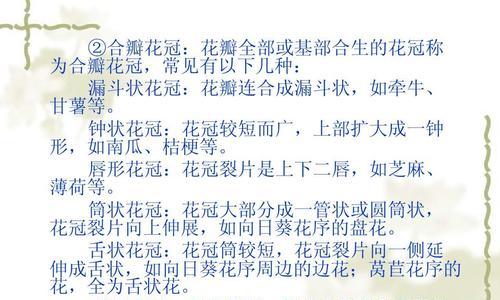 ②合瓣花冠：花瓣全部或基部合生的花冠称
为合瓣花冠，常见有以下几种：
漏斗状花冠：花瓣连合成漏斗状，如牵牛、
甘薯等。
钟状花冠：花冠较短而广，上部扩大成一钟
形，如南瓜、桔梗等。
唇形花冠：花冠裂片是上下二唇，如芝麻、
薄荷等。
筒状花冠：花冠大部分成一管状或圆筒状，
花冠裂片向上伸展，如向日葵花序的盘花。
舌状花冠：花冠筒较短，花冠裂片向一侧延
伸成舌状，如向日葵花序周边的边花；莴苣花序的
花，全为舌状花。